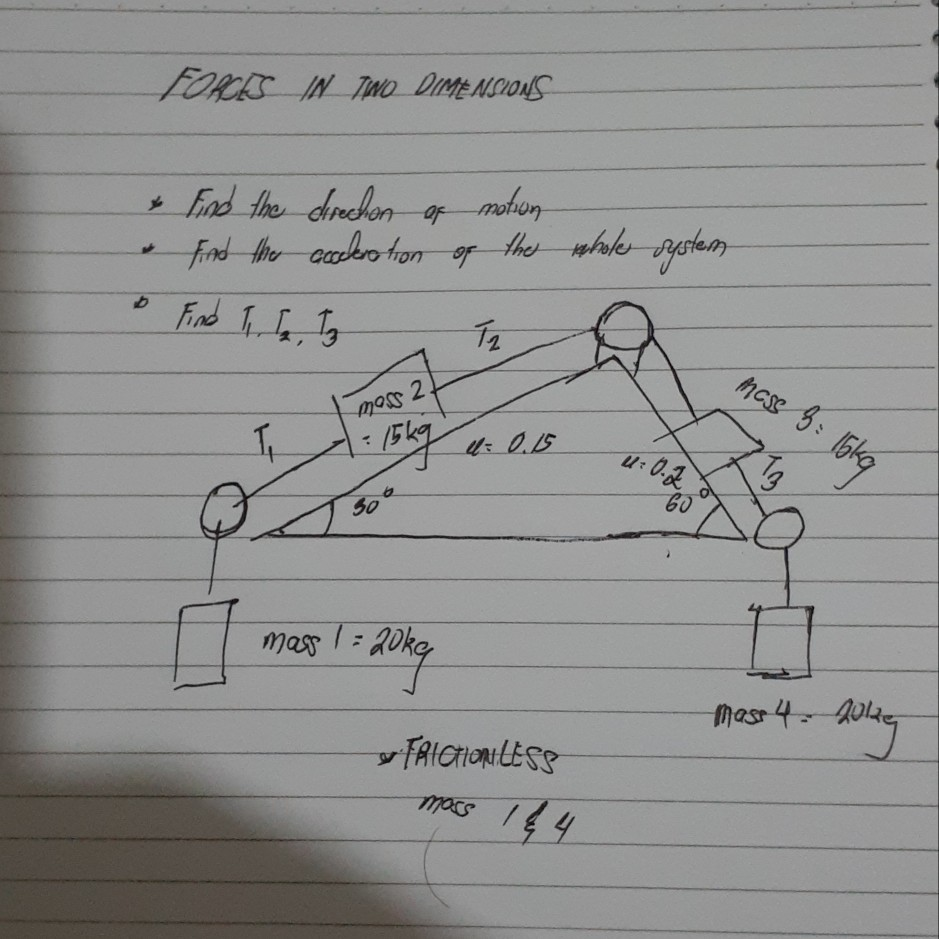 FORCES IN TWO DIMENSIONS
* Find the direction of motion
* Find the acceleration of the whole system
* Find T₁, T₂, T₃
T₂
mass 2
= 15kg
T₁
u= 0.15
mass 3= 15kg
u=0.2
T₃
30°
60°
mass 1 = 20kg
mass 4 = 20kg
* FRICTIONLESS
mass 1 & 4